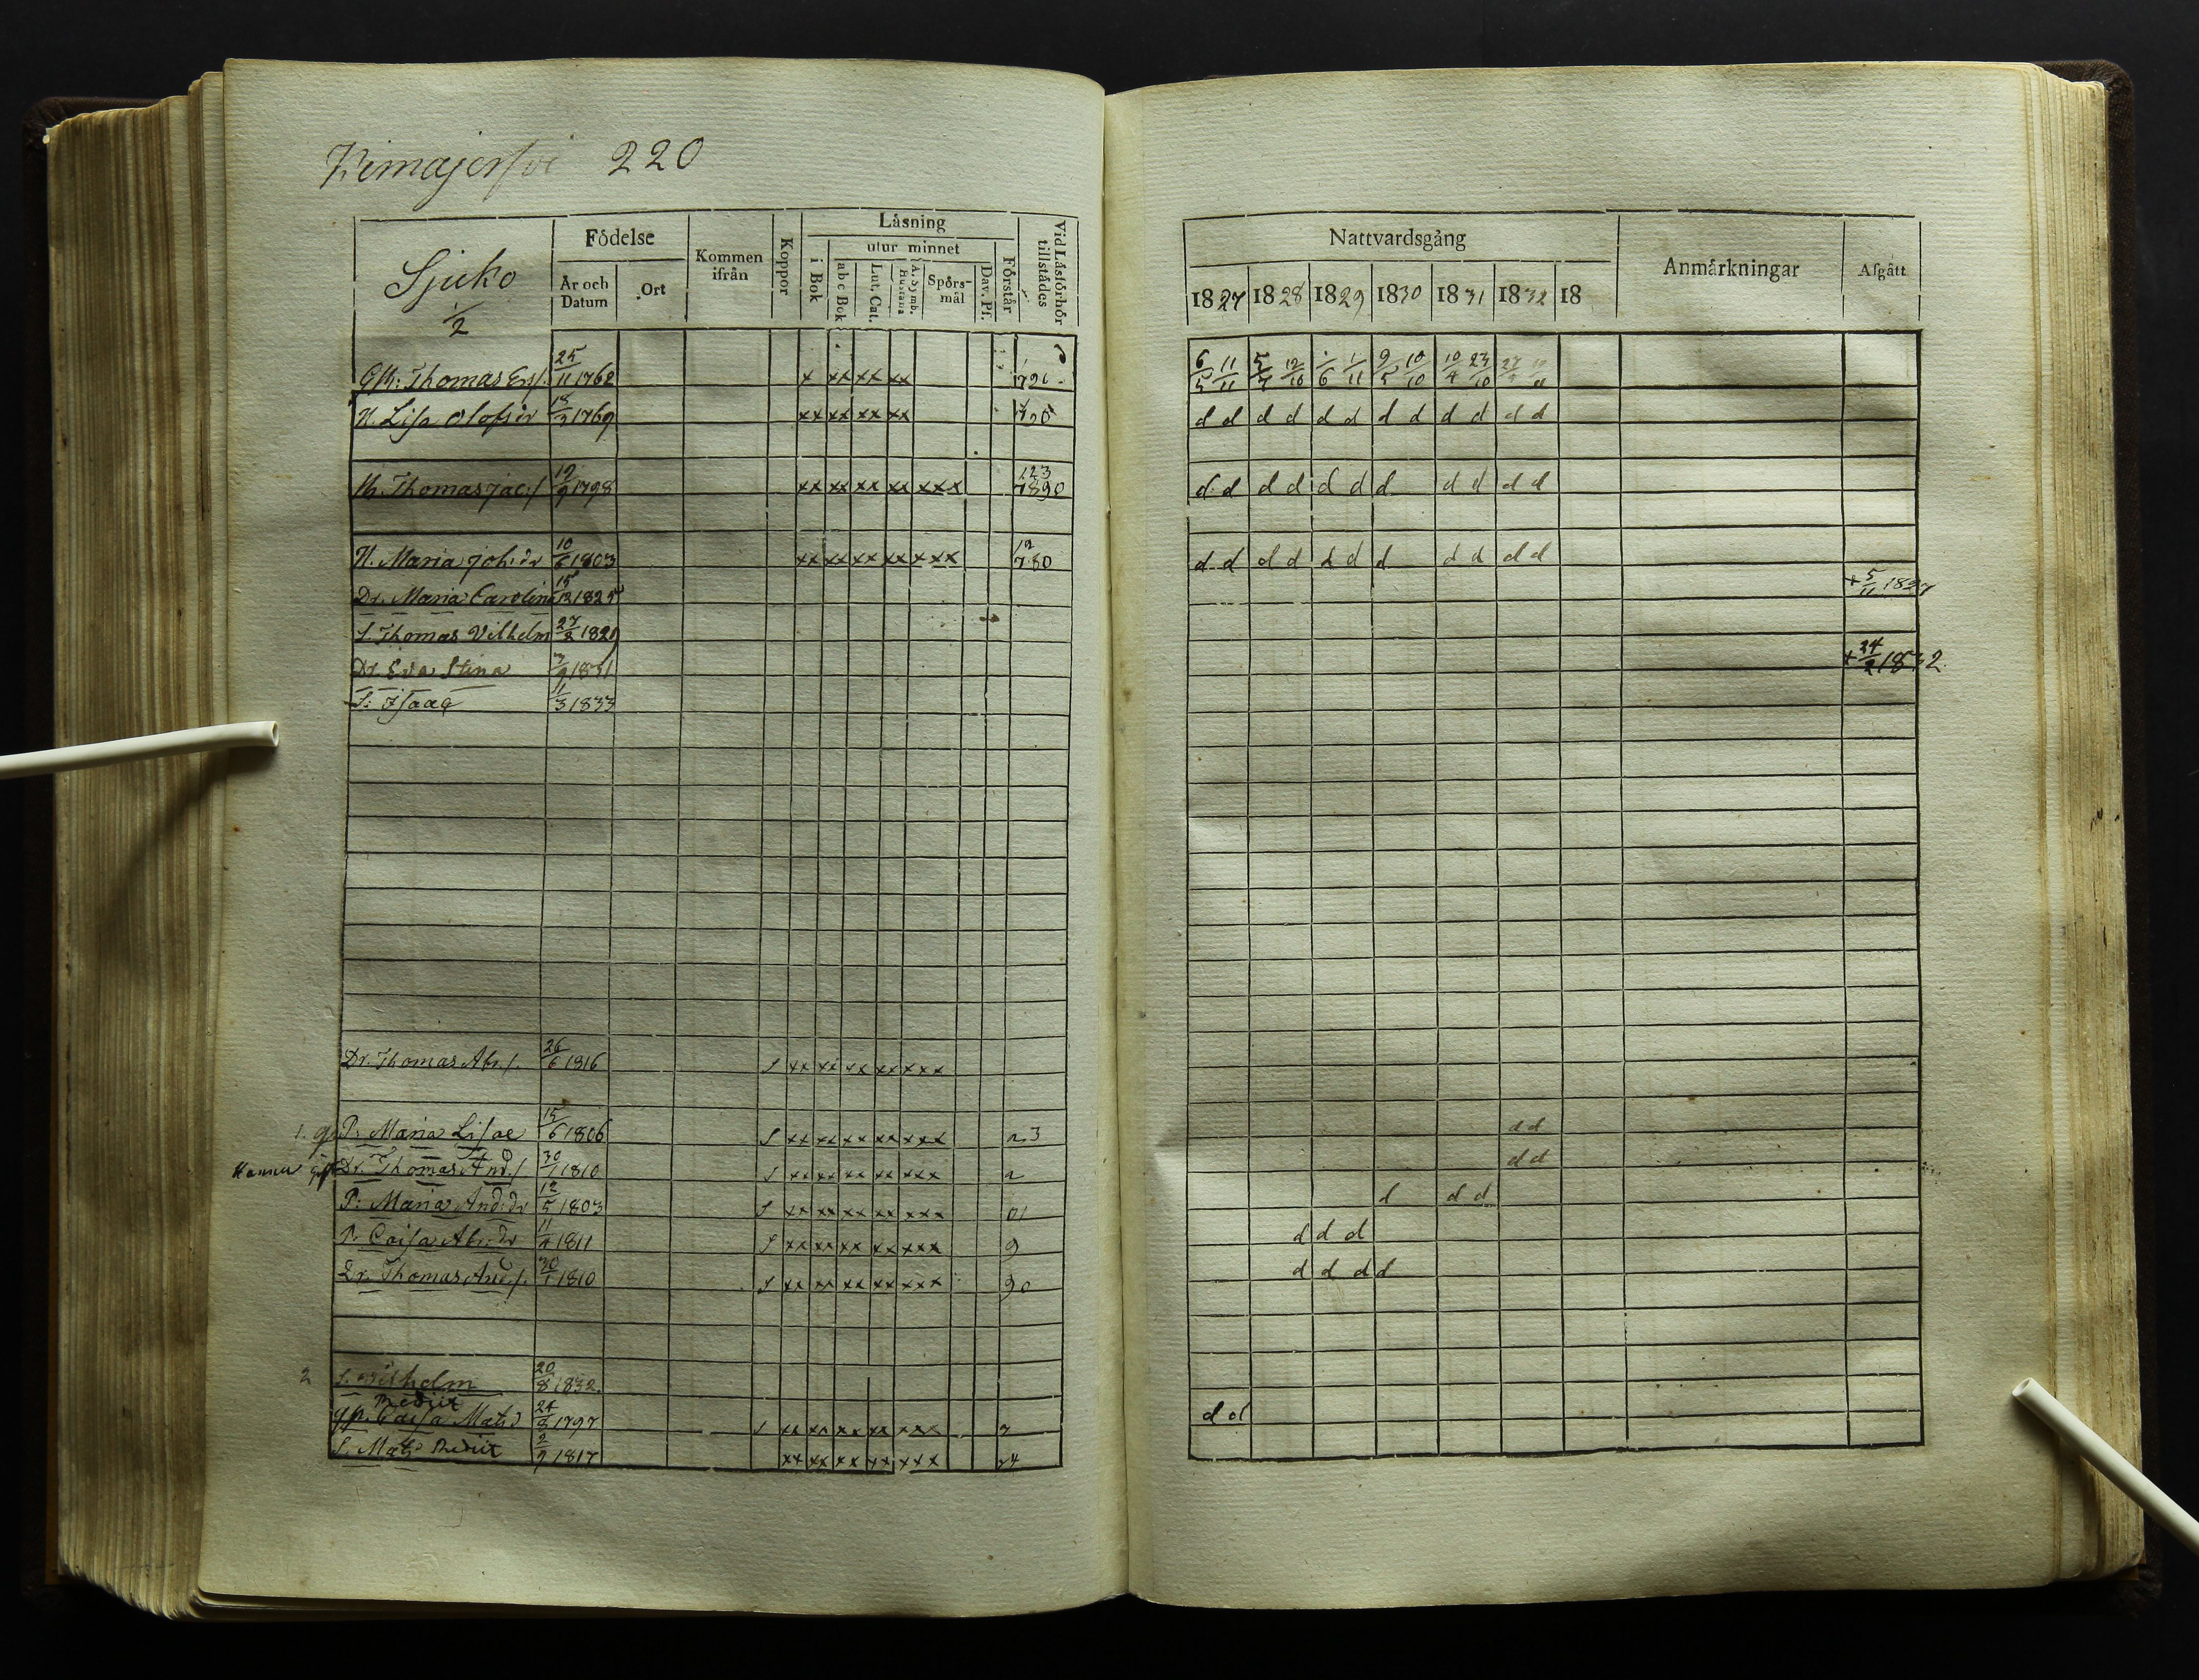 Kemajerfvi 220
Sjuko
1/2
Födelse
År och Datum
Ort
Kommen ifrån
Koppor
Läsning
i Bok
utur minnet
abc Bok
Lut. Cat.
A. Symb. Hustafla
Spörs-mål
Dav. Ps.
Förstår
Vid Läsförhör tillstädes
Thomas Ers. 25/11 1762 x xx xx xx
H. Lisa Olofsdr 18/3 1769 xx xx xx xx
M. Thomas Jac.s. 19/9 1798 xx xx xx xx xxx 123 7890
H. Maria Joh:dr 10/6 1803 xx xx xx xx x xx 12 780
Dr. Maria Carolina 15/12 1825
S. Thomas Vilhelm 27/2 1829
Dr. Eva Stina 3/9 1831
S: Isaac 11/3 1833
Dr. Thomas Abr.s. 26/6 1816 s xx xx xx xx xxx
1. P: Maria Lisae 15/6 1806 s xx xx xx xx xxx 23
Dr. Thomas And.s. 30/1 1810 s xx xx xx xx xxx 2
P: Maria And:dr 12/5 1803 s xx xx xx xx xxx 01
P. Caisa Abr:dr 11/4 1811 s xx xx xx xx xxx 9
Dr. Thomas And.s. 30/1 1810 s xx xx xx xx xxx 90
2 S. Vilhelm 20/8 1832.
Rediit
Caisa Mats 24/8 1797 s xx xx xx xx xxx 7
S. Mats Rediit 2/9 1817 xx xx xx xx xxx 24
Nattvardsgång
Anmärkningar
Afgått
1827 1828 1829 1830 1831 1832 18
6/5 11/11 5/7 12/10 1/6 1/11 9/5 10/10 10/4 23/10
d d d d d d d d d d d d
d d d d d d d d d d d
d d d d d d d d d d d
+ 5/11 1827
+ 24/2 1832
d d
d d
d d d
d d d
d d d d
d d